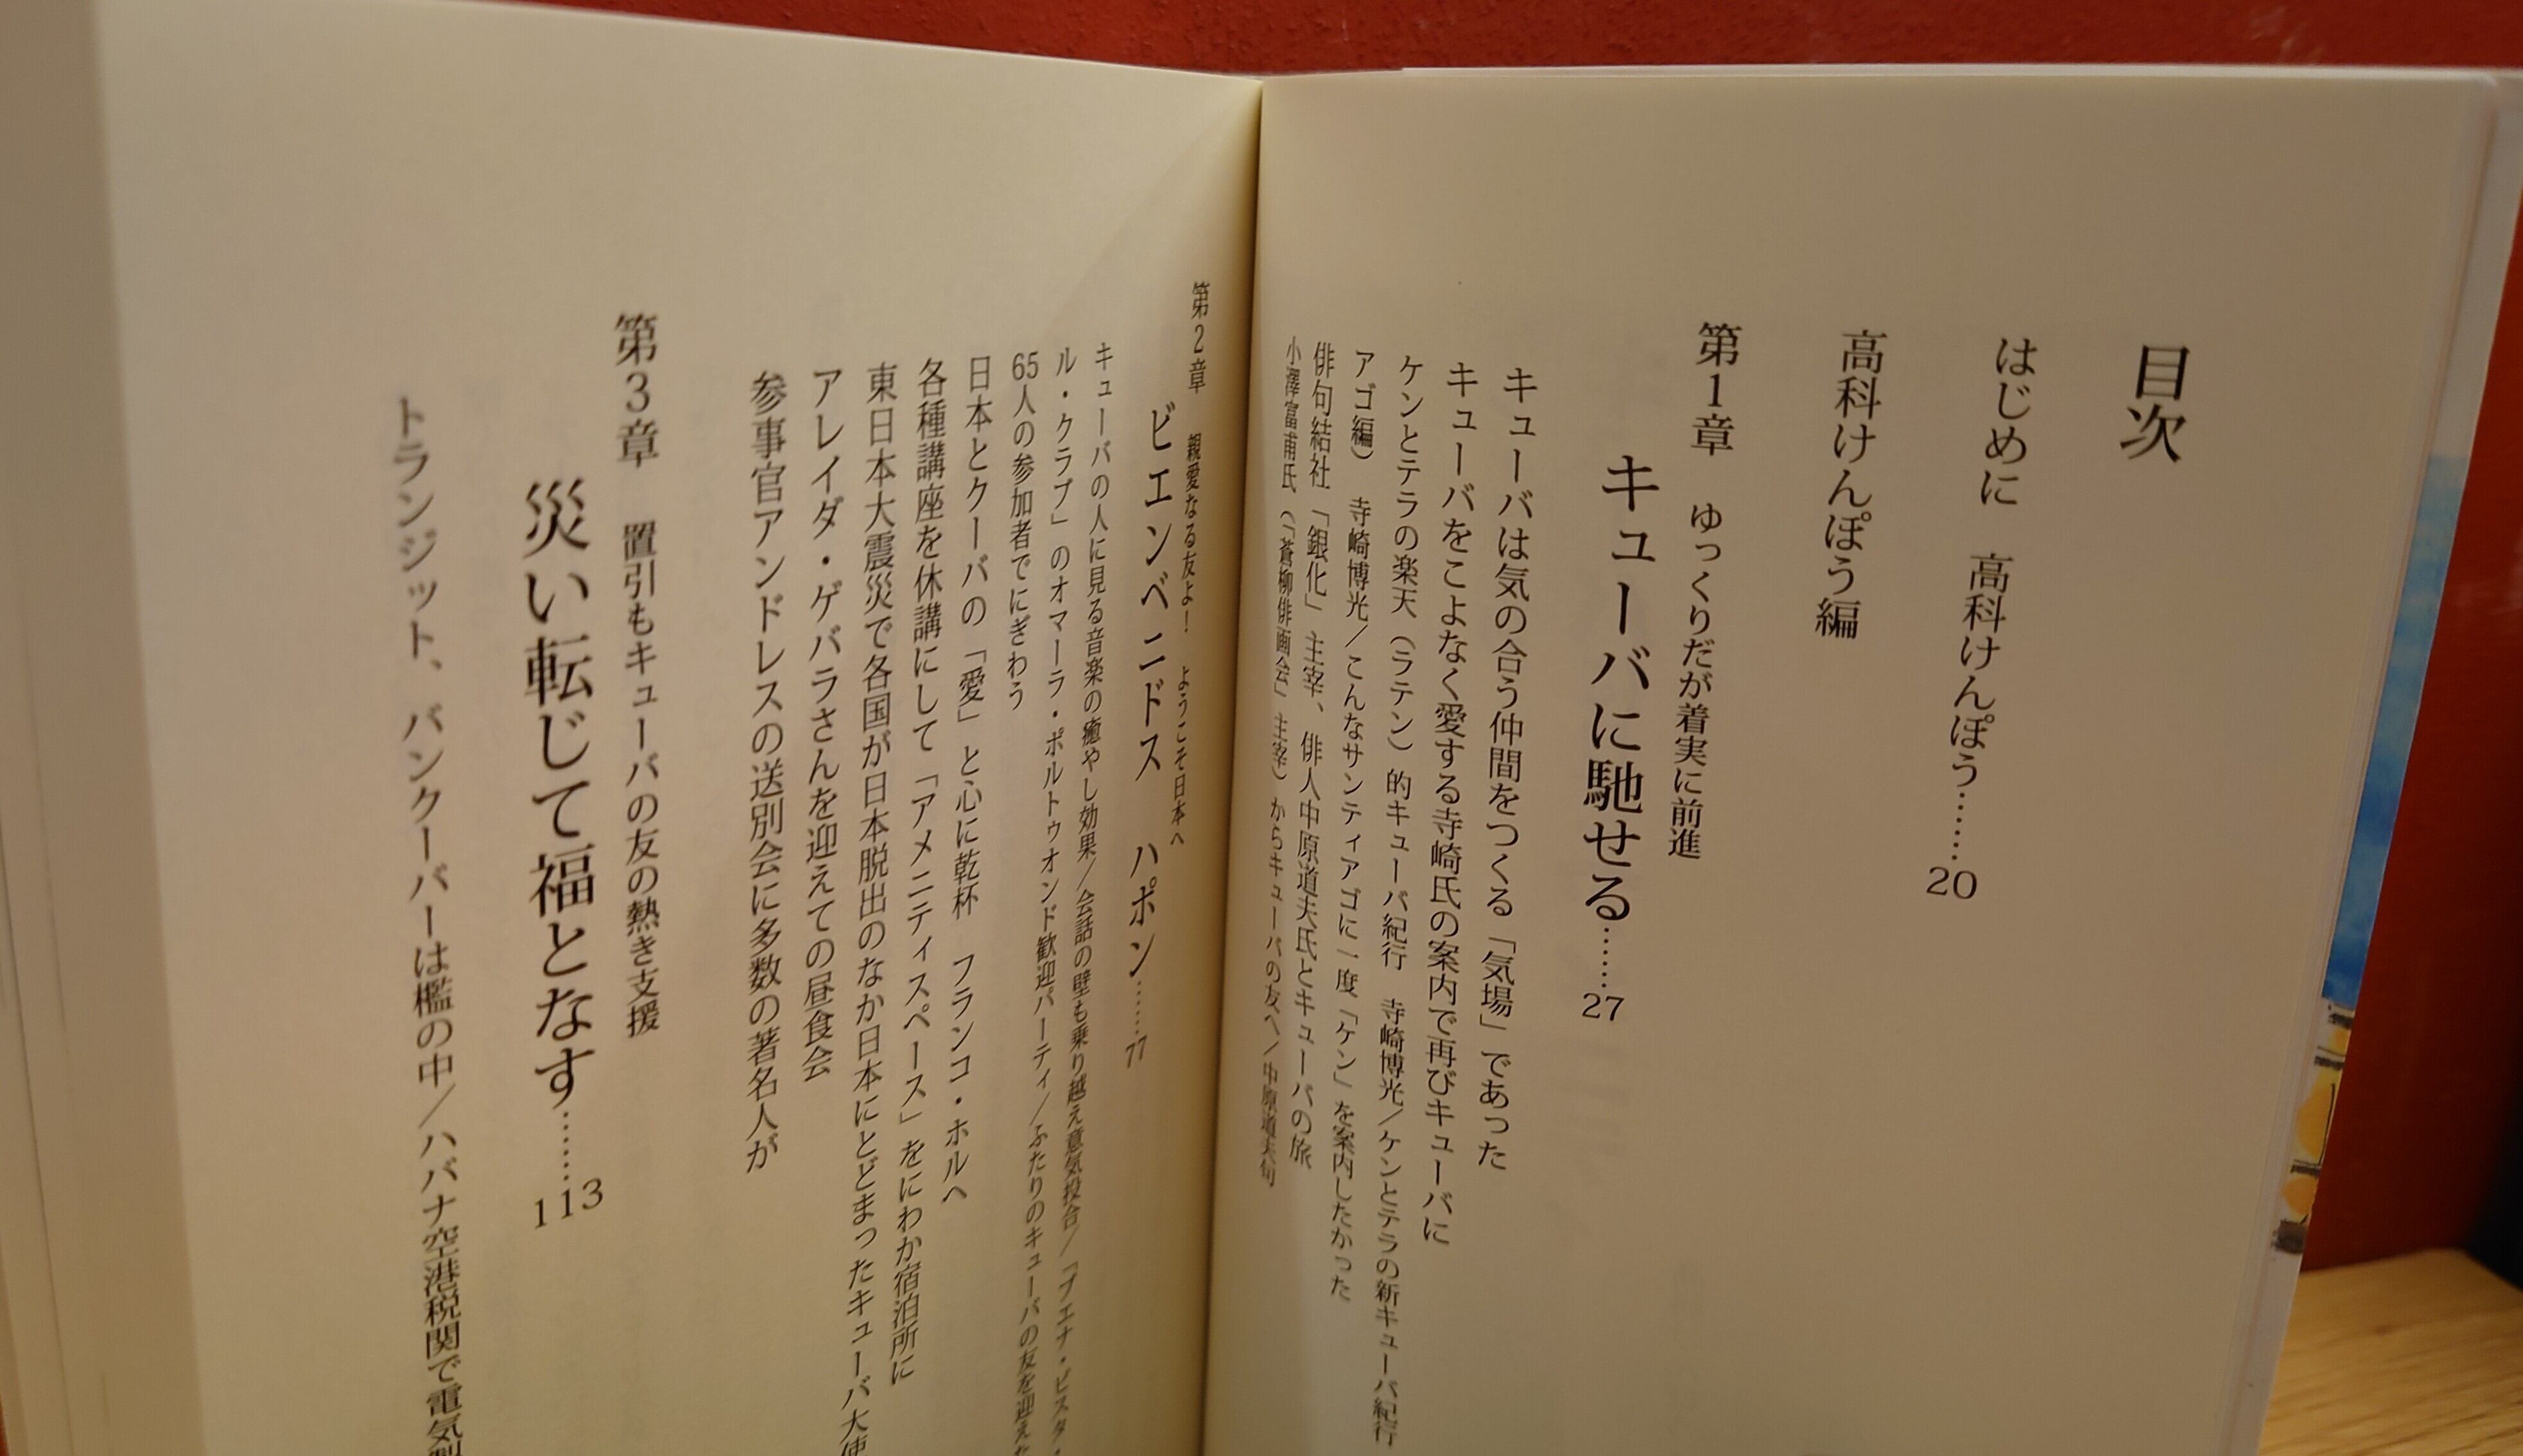 目次
はじめに　高科けんぽう……20
高科けんぽう編
第1章　ゆっくりだが着実に前進
キューバに馳せる……27
キューバは気の合う仲間をつくる「気場」であった
キューバをこよなく愛する寺崎氏の案内で再びキューバに
ケンとテラの楽天（ラテン）的キューバ紀行　寺崎博光／ケンとテラの新キューバ紀行
アゴ編）　寺崎博光／こんなサンティアゴに一度「ケン」を案内したかった
俳句結社「銀化」主宰、俳人中原道夫氏とキューバの旅
小澤富甫氏（「蒼柳俳画会」主宰）からキューバの友へ／中原道夫句
第2章　親愛なる友よ！　ようこそ日本へ
ビエンベニドス　ハポン……77
キューバの人に見る音楽の癒やし効果／会話の壁も乗り越え意気投合／「ブエナ・ビスタ・
ル・クラブ」のオマーラ・ポルトゥオンド歓迎パーティ／ふたりのキューバの友を迎えた
65人の参加者でにぎわう
日本とクーバの「愛」と心に乾杯　フランコ・ホルヘ
各種講座を休講にして「アメニティスペース」をにわか宿泊所に
東日本大震災で各国が日本脱出のなか日本にとどまったキューバ大使
アレイダ・ゲバラさんを迎えての昼食会
参事官アンドレスの送別会に多数の著名人が
第3章　置引もキューバの友の熱き支援
災い転じて福となす……113
トランジット、バンクーバーは檻の中／ハバナ空港税関で電気製